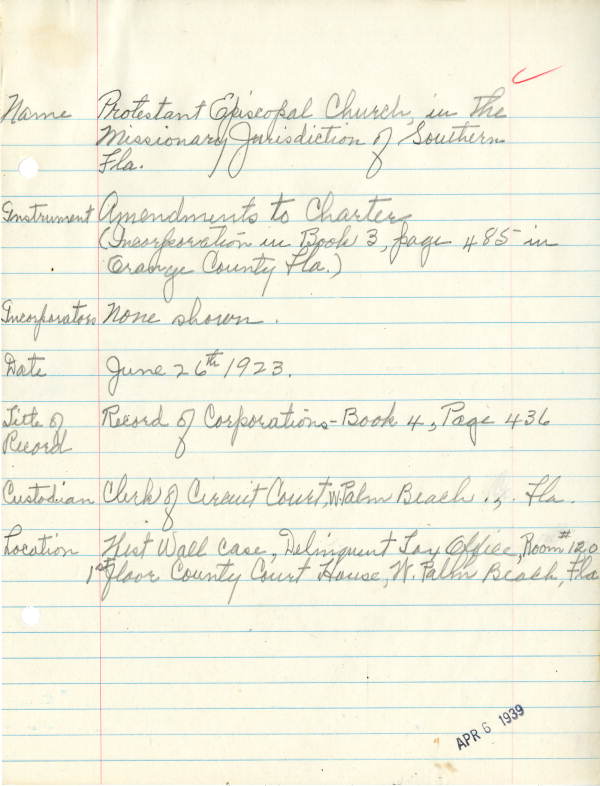 Name Protestant Episcopal Church, in The
Missionary Jurisdiction of Southern
Fla.
Instrument Amendments to Charter
(Incorporation in Book 3, page 485 in
Orange County Fla.)
Incorporators None shown.
Date June 26th 1923.
Title of Record of Corporations - Book 4, Page 436
Record
Custodian Clerk of Circuit Court, W. Palm Beach., Fla.
Location West Wall Case, Delinquent Tax Office, Room #120
1st floor County Court House, W. Palm Beach, Fla
APR 6 1939